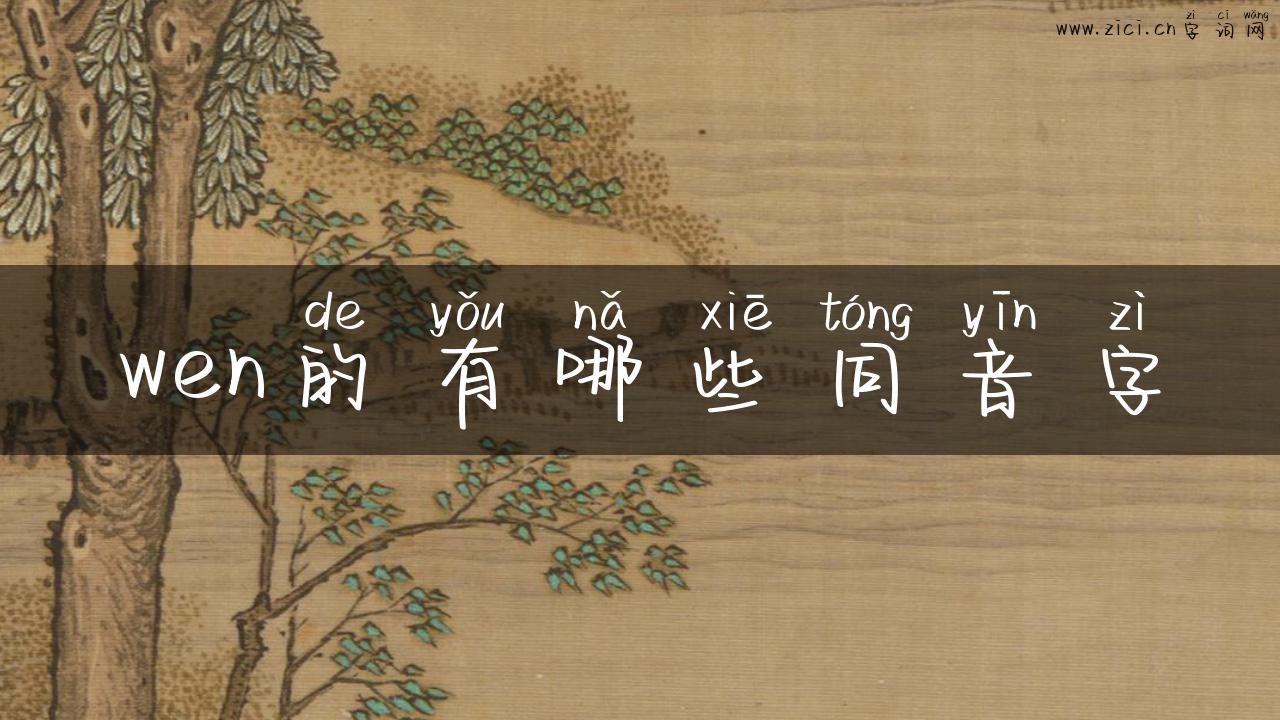 zì cí wǎng
www.zici.cn 字词网
de yǒu nǎ xiē tóng yīn zì
wen的有哪些同音字